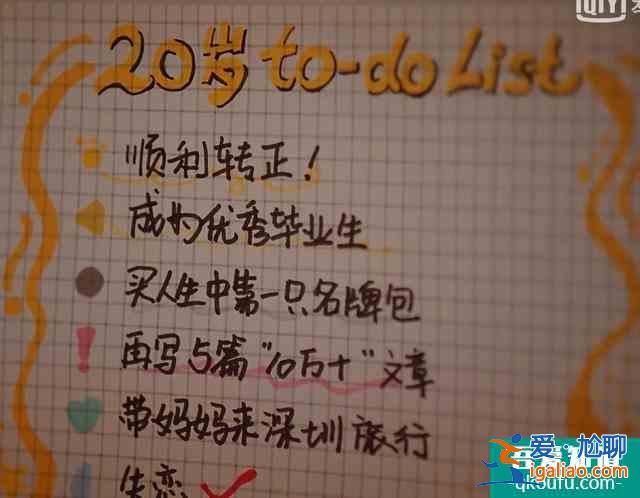 iQIYI
20岁 to-do List
顺利转正！
成为优秀毕业生
买人生中第一只名牌包
再写5篇“10万+”文章
带妈妈来深圳旅行
失恋
爱·尬聊
jigaliao.com
qk5ufu.com